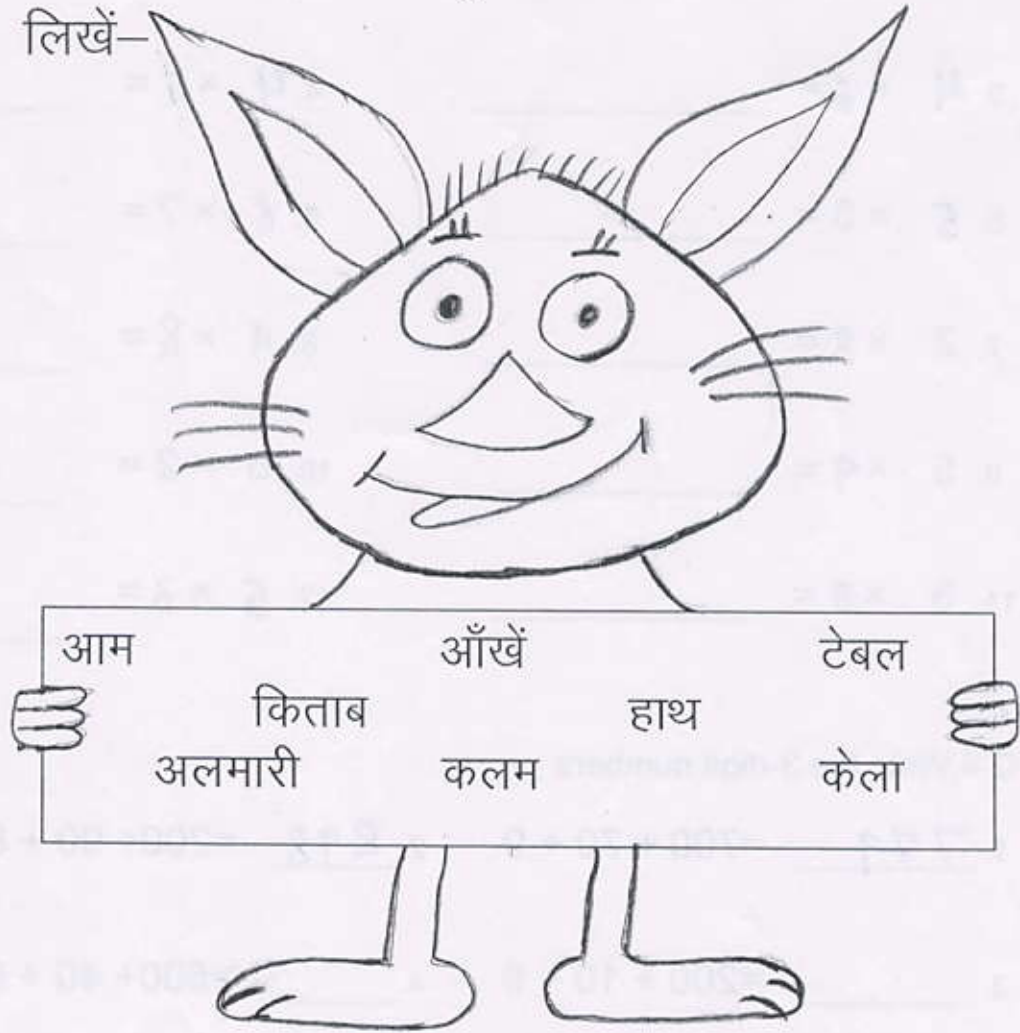 लिखें–
आम आँखें टेबल
किताब हाथ
अलमारी कलम केला